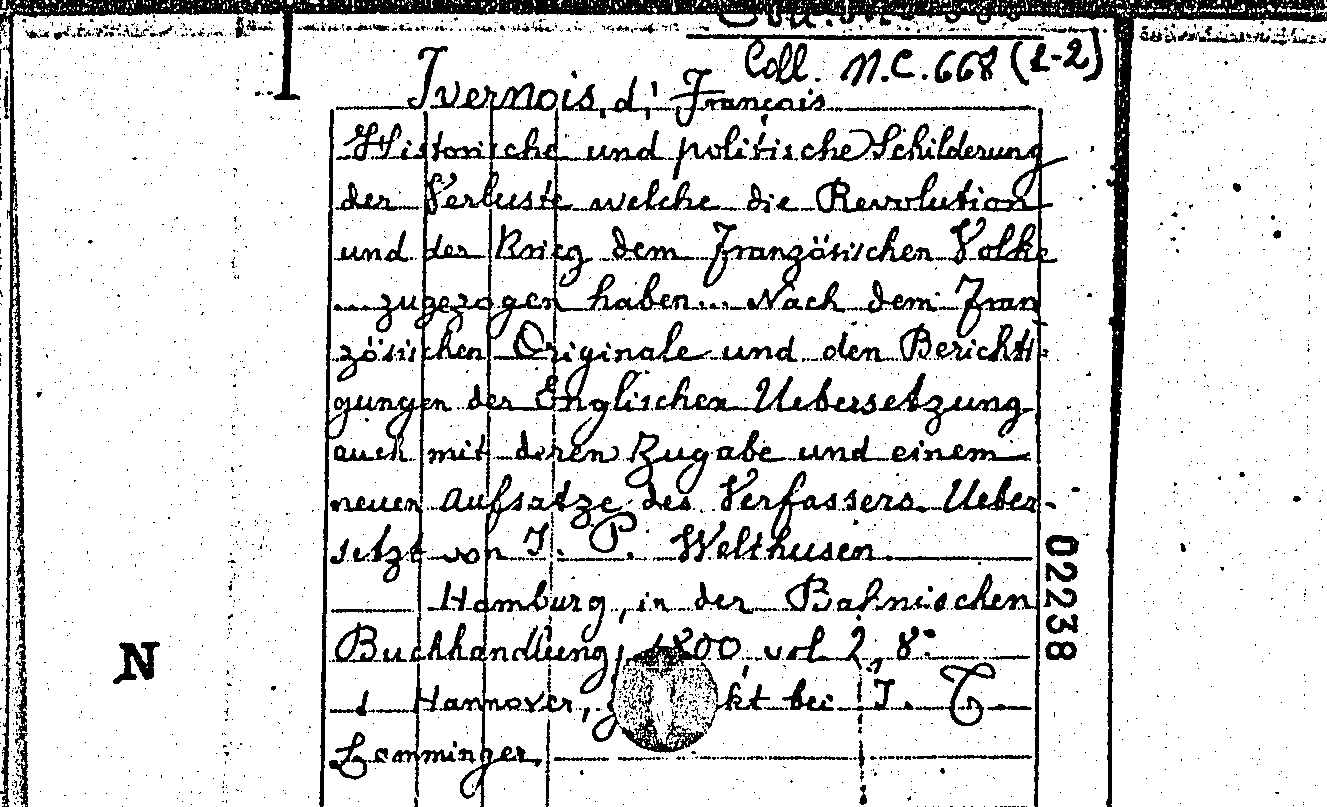 Coll. n.c. 668 (1-2)
Ivernois, d', François
Historische und politische Schilderung
der Verluste welche die Revolution
und der Krieg dem Französischen Volke
... zugezogen haben... Nach dem Fran
zösischen Originale und den Berichti-
gungen der Englischen Uebersetzung
auch mit deren Zugabe und einem
neuen Aufsatze des Verfassers. Ueber-
setzt von J. P. Welthusen.
Hamburg, in der Bahnischen
Buchhandlung, 1800, vol 2, 8°
Hannover, bei J. T.
Lamminger.
02238
N